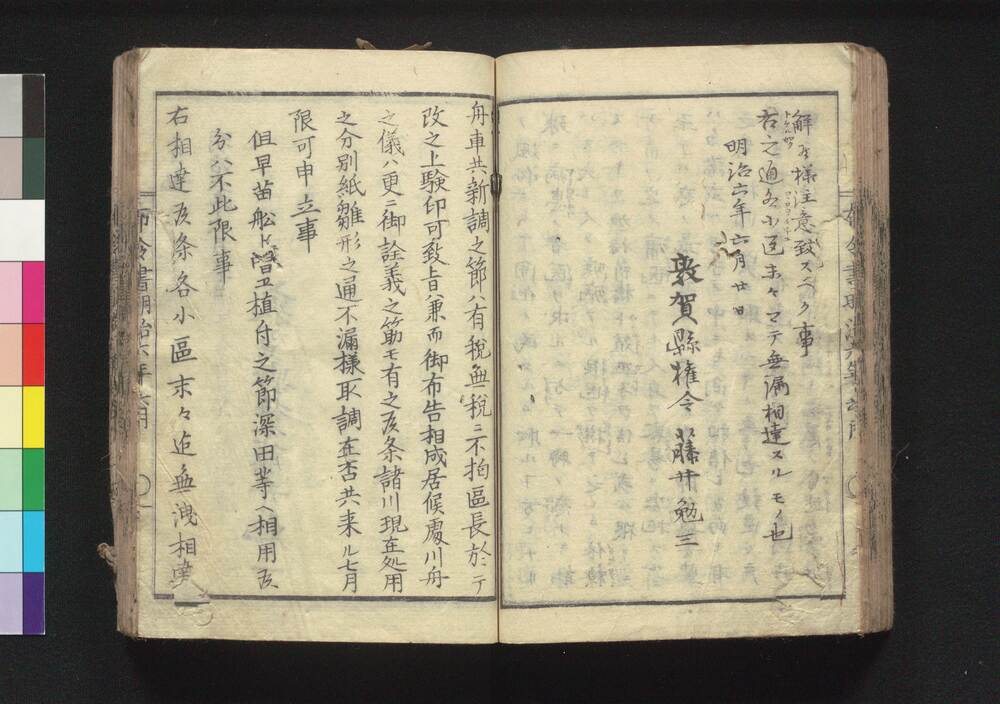 解セ様注意致スベク事
右之通各小区末々マテ無漏相達スルモノ也
明治六年六月廿日
敦賀縣権令藤井勉三
舟車共新調之節ハ有税無税ニ不拘區長於テ
改之上験印可致旨ハ兼而御布告相成居候處川舟
之儀ハ更ニ御詮義之筋モ有之候条諸川現在処用
之分別紙雛形之通不漏様取調在否共来ル七月
限可申立事
但早苗舩ト唱ヱ植付之節深田等ヘ相用候
分ハ不此限事
右相達候条各小區末々迄無洩相達
布令書明治六年六月